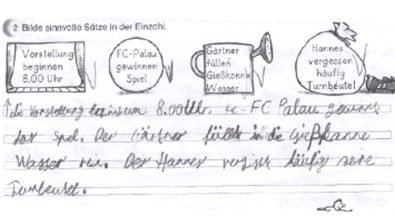 2 Bilde sinnvolle Sätze in der Einzahl.
Vorstellung
beginnen
8.00 Uhr
FC-Palau
gewinnen
Spiel
Gärtner
füllen
Gießkanne
Wasser
Hannes
vergessen
häufig
Turnbeutel
die Vorstellung beginnt um 8.00 Uhr. FC Palau gewinnt
das Spiel. Der Gärtner füllt in die Gießkanne
Wasser rein. Der Hannes vergisst häufig seine
Turnbeutel.